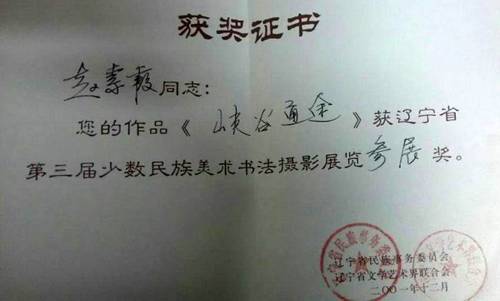 获奖证书
赵素霞同志：
您的作品《峡谷通途》获辽宁省
第三届少数民族美术书法摄影展览参展奖。
辽宁省民族事务委员会
辽宁省文学艺术界联合会
二〇〇一年十二月